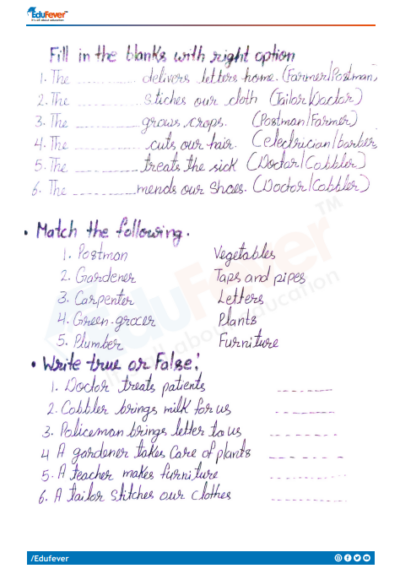 EduFever
Fill in the blanks with right option
1. The .......... delivers letters home. (Farmer/Postman)
2. The .......... stiches our cloth (Tailor/Doctor)
3. The .......... grows crops. (Postman/Farmer)
4. The .......... cuts our hair. (elelctrician/barber)
5. The .......... treats the sick (Doctor/Cobbler)
6. The .......... mends our shoes. (Doctor/Cabbler)
• Match the following.
1. Postman Vegetables
2. Gardener Taps and pipes
3. Carpenter Letters
4. Green-grocer Plants
5. Plumber Furniture
• Write true or False:
1. Doctor treats patients -------
2. Cobbler brings milk for us -------
3. Policeman brings letter to us -------
4 A gardener takes Care of plants -------
5. A teacher makes furniture -------
6. A tailor stitches our clothes -------
EduFever TM
all about education
/Edufever